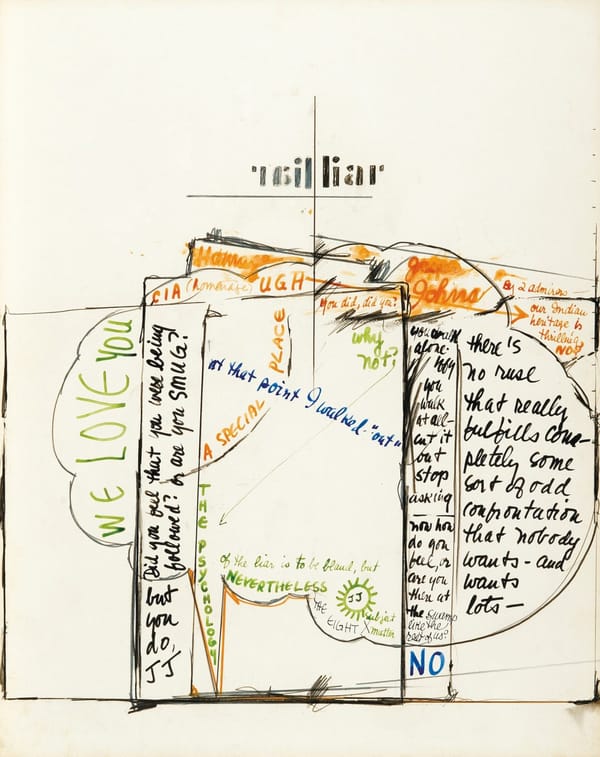 liar
Homage
Jasper
Johns
CIA (homerage) UGH
By 2 admirers
our Indian
heritage is
thrilling
NO?
You did, did you?
WE LOVE YOU
Did you feel that you were being
followed? or are you SMUG?
but
you
do,
JJ
A SPECIAL PLACE
why
not?
at that point I walked "out"
THE PSYCHOLOGY
of the liar is to be bland, but
NEVERTHELESS
JJ
THE
EIGHT
subject
matter
you walk
alone
you
walk
at all-
cut it
but
stop
asking
now how
do you
feel, or
are you
there at
the
like the
rest of us?
NO
there's
no ruse
that really
fulfills com-
pletely some
sort of odd
confrontation
that nobody
wants - and
wants
lots -